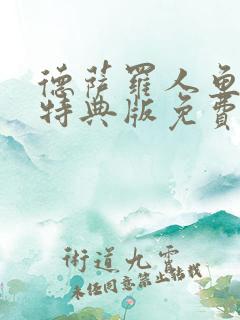 德萨罗人鱼
特典版免费
術道九霄
未经同意禁止转载